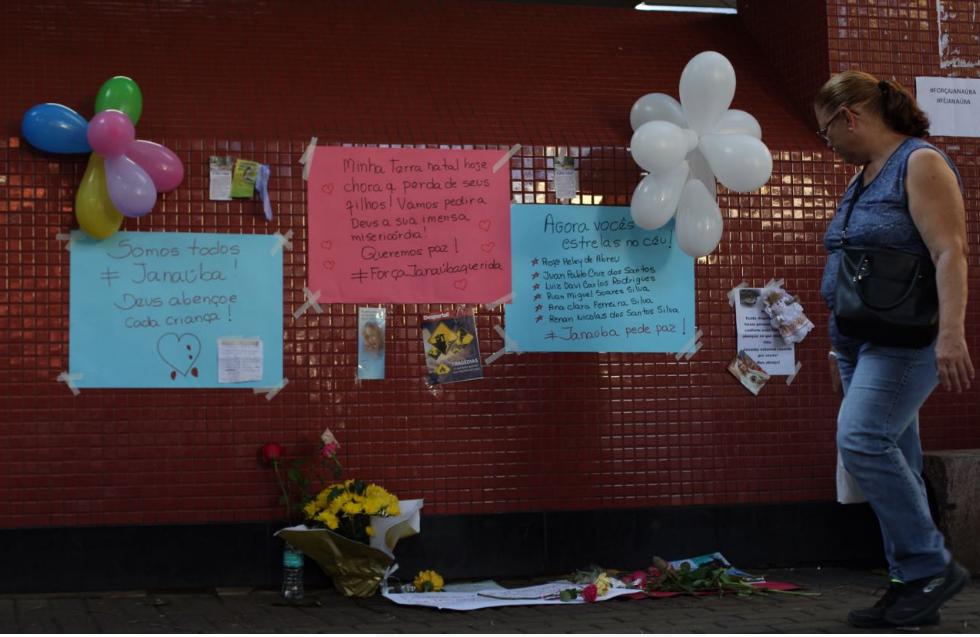 Somos todos
# Janaúba!
Deus abençoe
cada criança!
Minha Terra natal hoje
chora a perda de seus
filhos! Vamos pedir a
Deus a sua imensa
misericórdia!
Queremos paz!
#ForçaJanaúbaquerida
Agora vocês
estrelas no céu!
Juan Pablo Cruz dos Santos
Luiz Davi Carlos Rodrigues
Ruan Miguel Soares Silva
Ana Clara Ferreira Silva
Renan Nicolas dos Santos Silva
# Janaúba pede paz!
Despertai!
TRAGÉDIAS
#FORÇAJANAÚBA
#FÉJANAÚBA